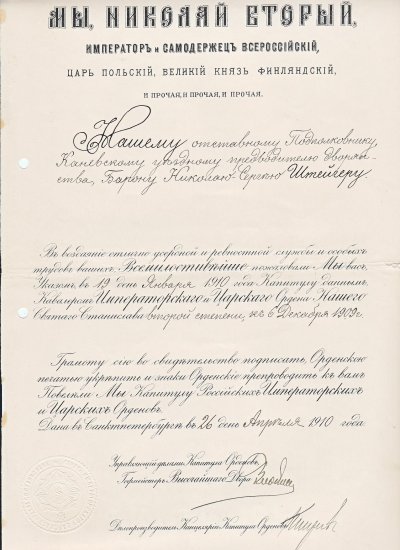 МЫ, НИКОЛАЙ ВТОРЫЙ,
ИМПЕРАТОРЪ и САМОДЕРЖЕЦЪ ВСЕРОССІЙСКІЙ,
ЦАРЬ ПОЛЬСКІЙ, ВЕЛИКІЙ КНЯЗЬ ФИНЛЯНДСКІЙ,
И ПРОЧАЯ, И ПРОЧАЯ, И ПРОЧАЯ.
Нашему отставному Подполковнику,
Каневскому уѣздному предводителю дворян-
ства, Барону Николаю-Сергѣю Штейгеру.
Въ воздаяніе отлично усердной и ревностной службы и особыхъ
трудовъ вашихъ, Всемилостивѣйше пожаловали Мы васъ,
Указомъ, въ 19 день Января 1910 года Капитулу даннымъ,
Кавалеромъ Императорскаго и Царскаго Ордена Нашего
Святаго Станислава второй степени, къ 6 Декабря 1909 г.
Грамоту сію во свидѣтельство подписать, Орденскою
печатью укрѣпить и знаки Орденскіе препроводить къ вамъ
Повелѣли Мы Капитулу Россійскихъ Императорскихъ
и Царскихъ Орденовъ.
Дана въ Санктпетербургѣ въ 26 день Апрѣля 1910 года
Управляющій дѣлами Капитула Орденовъ,
Гофмейстеръ Высочайшаго Двора
Дѣлопроизводитель Канцеляріи Капитула Орденовъ